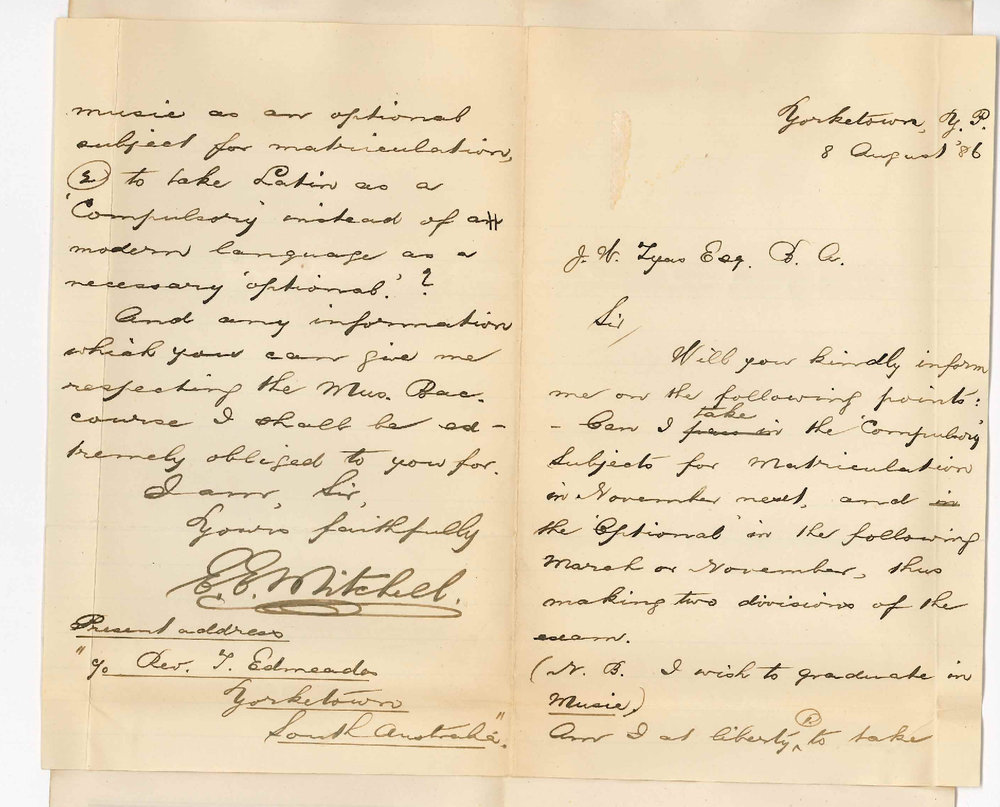 Yorketown, Y. P.
8 August '86
J. W. Tyas Esq. B. A.
Sir,
Will you kindly inform
me on the following points:
- Can I take in the 'Compulsory'
Subjects for Matriculation
in November next, and in
the 'Optional' in the following
March or November, thus
making two divisions of the
exam.
(N. B. I wish to graduate in
Music,)
Am I at liberty 1. to take
music as an optional
subject for matriculation,
2 to take Latin as a
'Compulsory' instead of a
modern language as a
necessary 'optional.'?
And any information
which you can give me
respecting the Mus. Bac.
course I shall be ex-
tremely obliged to you for.
I am, Sir,
Yours faithfully
E. E. Mitchell.
Present address
"c/o Rev. T. Edmeades
Yorketown
South Australia."